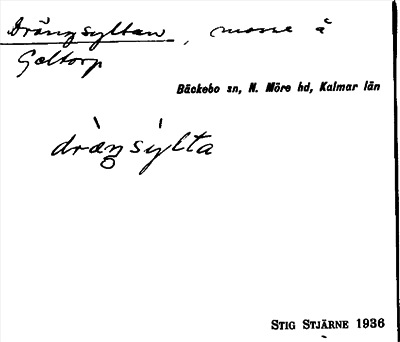 Drängsyltan, mosse å
Galtorp
Bäckebo sn, N. Möre hd, Kalmar län
dràŋsýlta
STIG STJÄRNE 1936